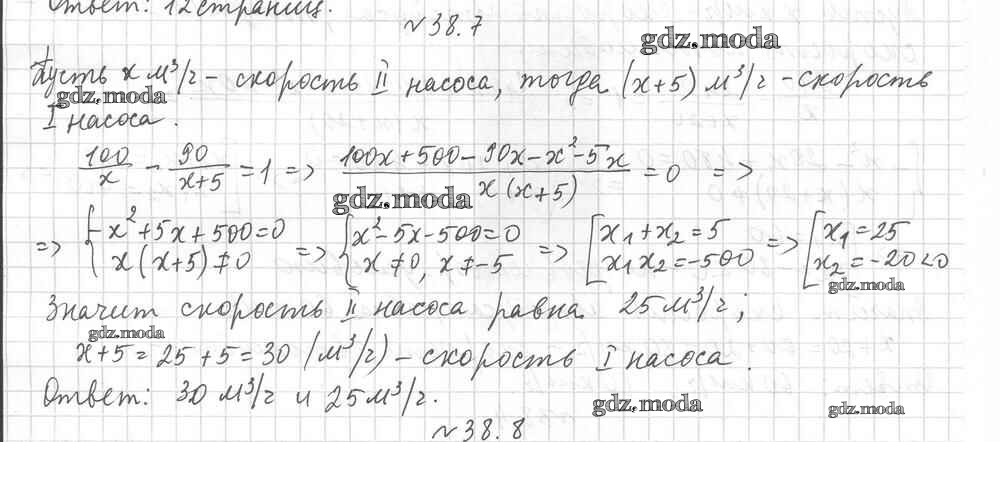 Ответ: 12 страниц.
№38.7
gdz.moda
Пусть x м³/г - скорость II насоса, тогда (x+5) м³/г - скорость
gdz.moda
I насоса.
100/x - 90/(x+5) = 1 => (100x+500-90x-x²-5x)/(x(x+5)) = 0 =>
gdz.moda
=> { -x²+5x+500=0 => { x²-5x-500=0 => [ x₁+x₂=5 => [ x₁=25
x(x+5)≠0 x≠0, x≠-5 x₁x₂=-500 x₂=-20<0
gdz.moda
Значит скорость II насоса равна 25 м³/г;
gdz.moda
x+5=25+5=30 (м³/г) - скорость I насоса.
Ответ: 30 м³/г и 25 м³/г.
gdz.moda
gdz.moda
№38.8